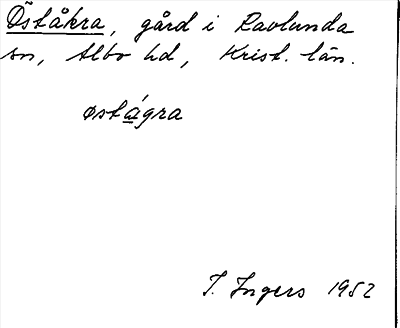 Öståkra, gård i Ravlunda
sn, Albo hd, Krist. län.
østá̱gra
I. Ingers 1952